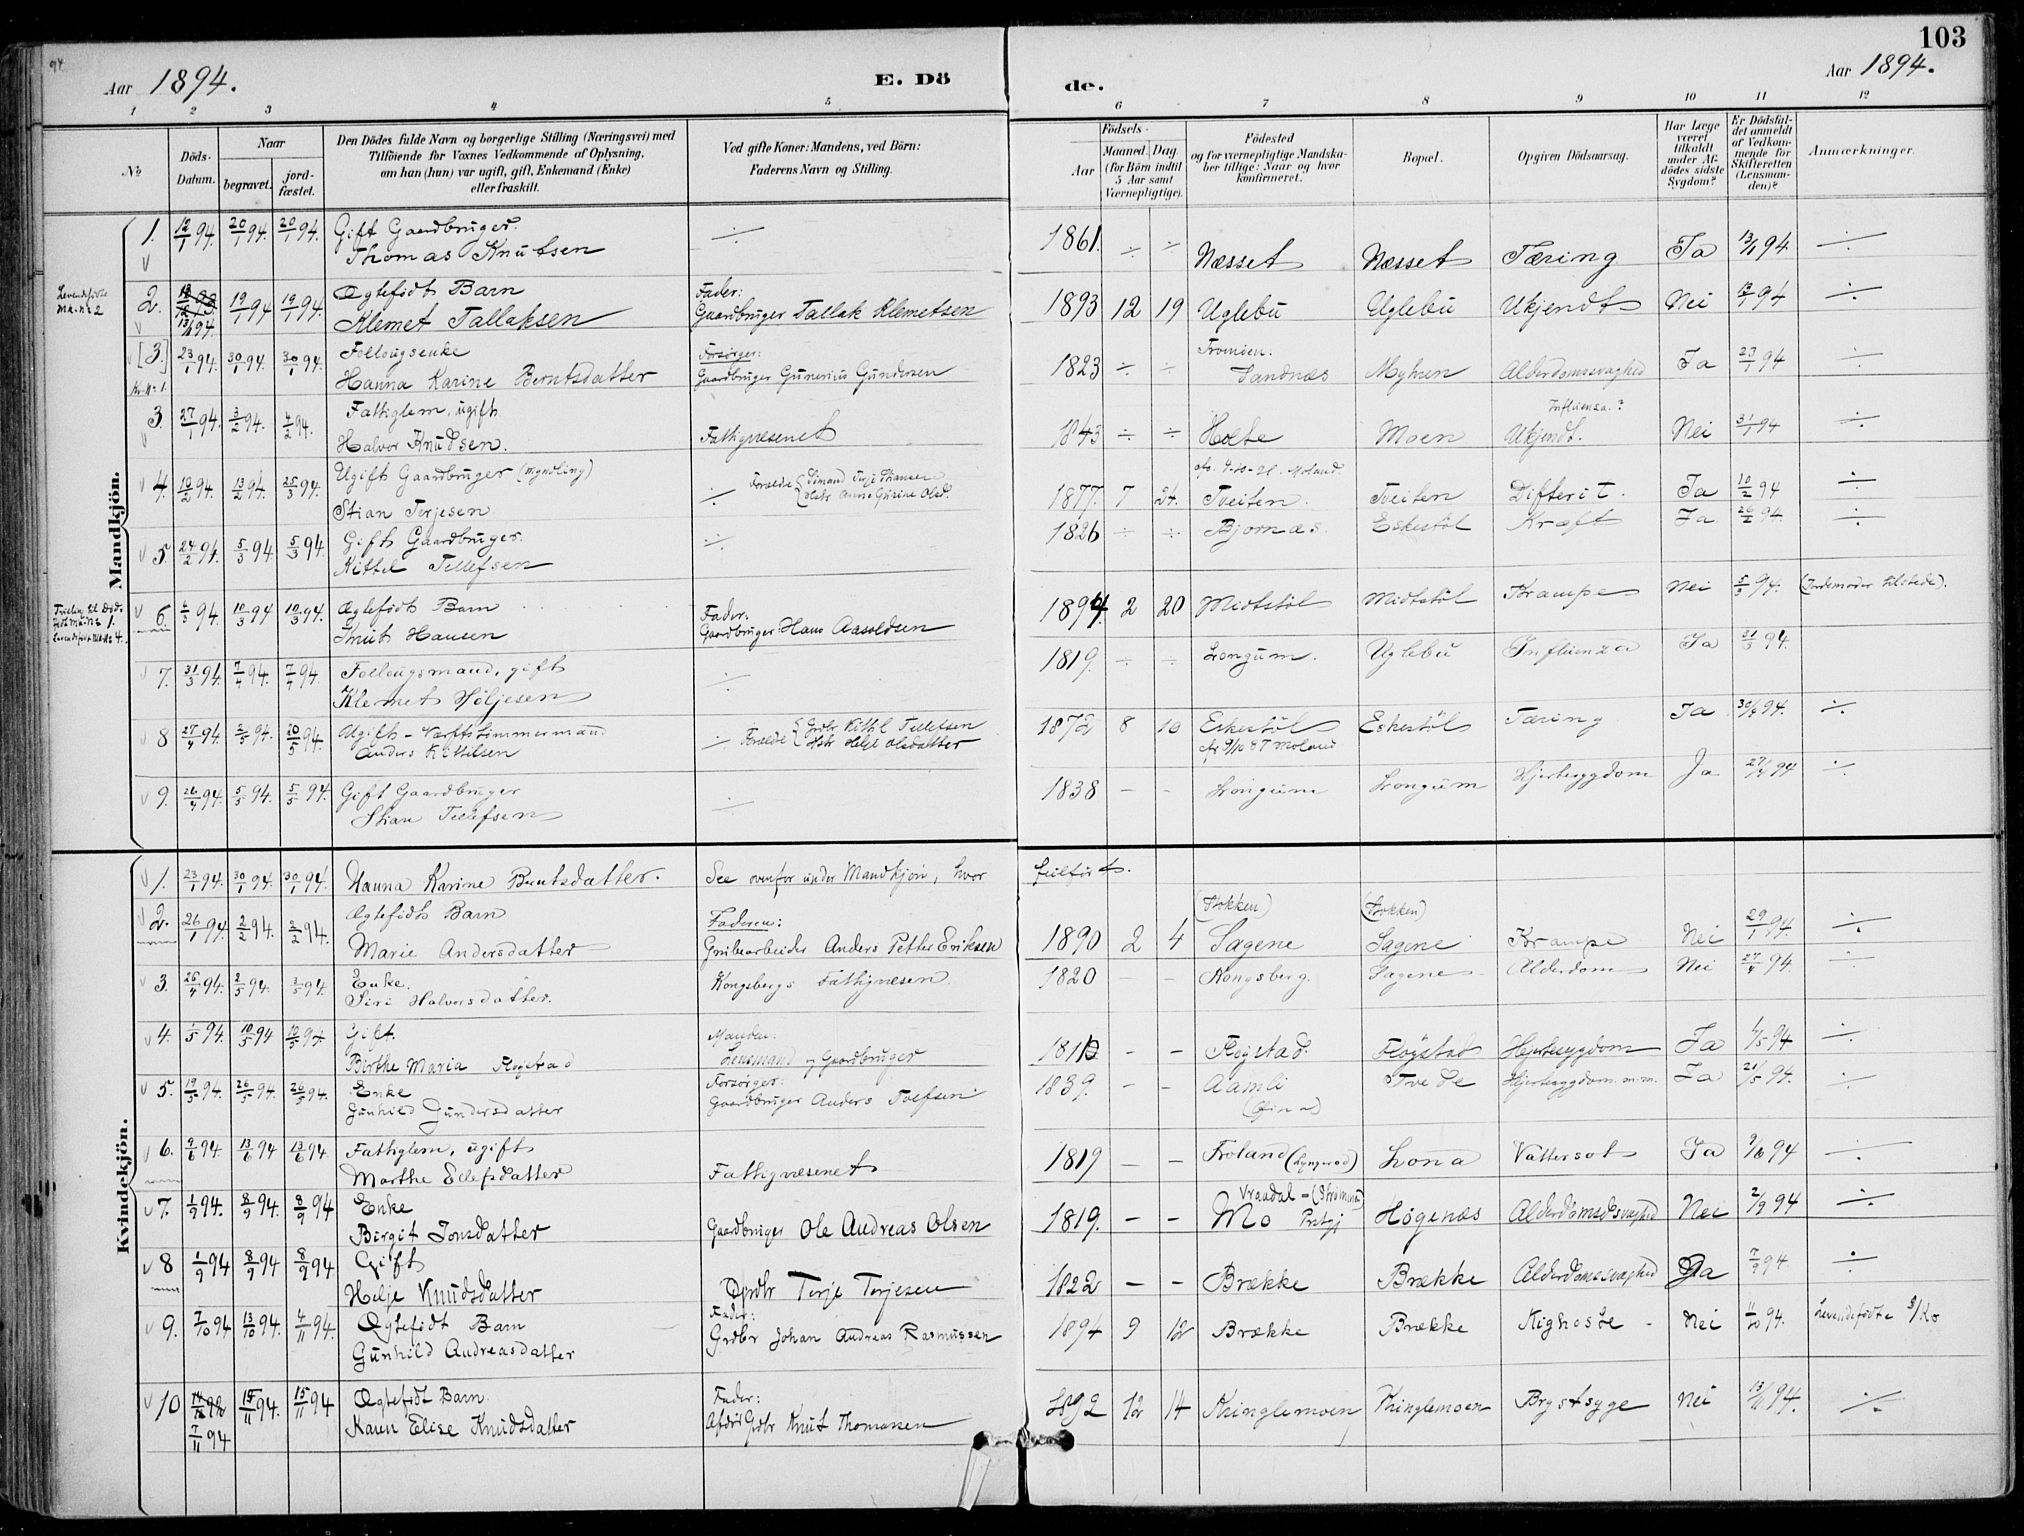 94
Aar 1894.
E. Dö
de.
Aar 1894.
103
1 2 3 4 5 6 7 8 9 10 11 12
No
Döds-Datum.
Naar
begravet.
jord-fæstet.
Den Dödes fulde Navn og borgerlige Stilling (Næringsvei) med
Tilföiende for Voxnes Vedkommende af Oplysning,
om han (hun) var ugift, gift, Enkemand (Enke)
eller fraskilt.
Ved gifte Koner: Mandens, ved Börn:
Faderens Navn og Stilling.
Födsels-
Aar
Maaned. Dag.
(for Börn indtil
5 Aar samt
Værnepligtige).
Födested
og for værnepligtige Mandska-
ber tillige: Naar og hvor
konfirmeret.
Bopæl.
Opgiven Dödsaarsag.
Har Læge
været
tilkaldt
under Af-
dödes sidste
Sygdom?
Er Dödsfal-
det anmeldt
af Vedkom-
mende for
Skifteretten
(Lensman-
den)?
Anmærkninger.
Mandkjön.
1. 12/1 94. 20/1 94. 20/1 94. Gift Gaardbruger. ÷ 1861. ÷ ÷ Næsset Næsset Tæring Ja 13/1 94. ÷
Thomas Knutsen
Levendefödte
Mk. No 2
2. 13/1 94. 19/1 94 19/1 94. Ægtefödt Barn Fader: 1893 12 19 Uglebu Uglebu Ukjendt Nei 13/1 94 ÷
Klemet Tallaksen Gaardbruger Tallak Klemetsen
[3.] 23/1 94. 30/1 94. 30/1 94. Föllougsenke Forsørger: 1823 ÷ ÷ Tromöen: Sandnæs Myhren Alderdomssvaghed Ja 23/1 94 ÷
Hanna Karine Berntsdatter Gaardbruger Gunerius Gundersen
3. 27/1 94. 3/2 94. 4/2 94. Fattiglem, ugift 1843 ÷ ÷ Holte Moen Influensa.? Ukjendt. Nei 31/1 94 ÷
Halvor Knudsen. Fattigvæsenet
4. 10/2 94. 13/2 94. 25/3 94. Ugift Gaardbruger (myndling) ÷ Forældre 1877. 7 24. Tveiten. Tveiten Difterit. Ja 10/2 94 ÷
Stian Terjesen
5. 24/2 94. 5/3 94 5/3 94. Gift Gaardbruger. ÷ 1826 ÷ ÷ Bjornæs. Eskestöl Kræft Ja 26/2 94. ÷
Kittel Tellefsen
6. 4/3 94 10/3 94 10/3 94. Ægtefödt Barn Fader: 1894. 2 20 Midtstöl Midtstöl Krampe Nei 5/3 94. (Jordemoder tilstede).
Knut Hansen Gaardbruger Hans Aasoldsen
7. 31/3 94. 7/4 94. 7/4 94. Föllougsmand, gift ÷ 1819. ÷ ÷ Longum. Uglebu Influenza Ja 31/3 94.
Klemet Höljesen
8 27/4 94. 2/5 94. 20/5 94. Ugift - Værftstimmermand ÷ Forældre { Grdbr Kittil Tellefsen 1872 8 10 Eskestöl Eskestöl Tæring Ja 30/4 94. ÷
Anders Kittilsen Hstr Helje Olsdatter Moland
9. 26/4 94. 5/5 94. 5/5 94. Gift Gaardbruger ÷ 1838 - - Longum Longum Hjertesygdom Ja 27/4 94 ÷
Stian Tellefsen
Kvindekjön.
1. 23/1 94. 30/1 94. 30/1 94. Hanna Karine Berntsdatter. See ovenfor under Mandkjön, hvor tilfört.
2. 26/1 94. 2/2 94. 2/2 94. Ægtefödt Barn Faderen: 1890 2 4 (Stokken) Sagene (Stokken) Sagene Krampe Nei 29/1 94. ÷
Marie Andersdatter Grubearbeider Anders Petter Eriksen
3. 26/4 94. 2/5 94. 3/5 94. Enke. Kongsbergs Fattigvæsen. 1820 - - Kongsberg. Sagene Alderdom Nei 27/4 94. ÷
Siri Halvorsdatter.
4. 1/5 94. 10/5 94 10/5 94 Gift. Manden: - - Flöystad. Flöystad Hjertesygdom Ja 1/5 94 ÷
Birthe Maria Flöystad Lensmand og Gaardbruger
5. 19/5 94. 26/5 94. 26/5 94. Enke Forsørger: 1839. - - Aamli Tvede Hjertesygdom m.m. Ja 21/5 94. ÷
Gunhild Gundersdatter Gaardbruger Anders Toefsen
6. 9/6 94 13/6 94 13/6 94 Fattiglem, ugift 1819 - - Froland Lona Vattersot Ja 9/6 94 ÷
Marthe Ellefsdatter Fattigvæsenet
7. 1/9 94. 8/9 94. 8/9 94 Enke 1819. - - Vraadal - Mo Prstgj Høgenæs Alderdomssvaghed Nei 2/9 94 ÷
Birgit Jonsdatter Gaardbruger Ole Andreas Olsen
8 1/9 94 8/9 94 8/9 94 Gift 1822 - - Brække Brække Alderdomssvaghed Ja 7/9 94. ÷
Helje Knudsdatter Terje Terjesen
9. 7/10 94 13/10 94. 4/11 94. Ægtefödt Barn Fader: 1894 9 12 Brække Brække Kighoste - Nei 11/10 94. Levendefödte
Gunhild Andreasdatter Grdbr Johan Andreas Rasmussen
10 7/11 94 15/11 94. 15/11 94 Ægtefödt Barn. Fader: 1892 12 14 Kringlemoen Kringlemoen Brystsyge Nei 13/11 94. ÷
Karen Elise Knudsdatter Grdbr Knut Thomassen